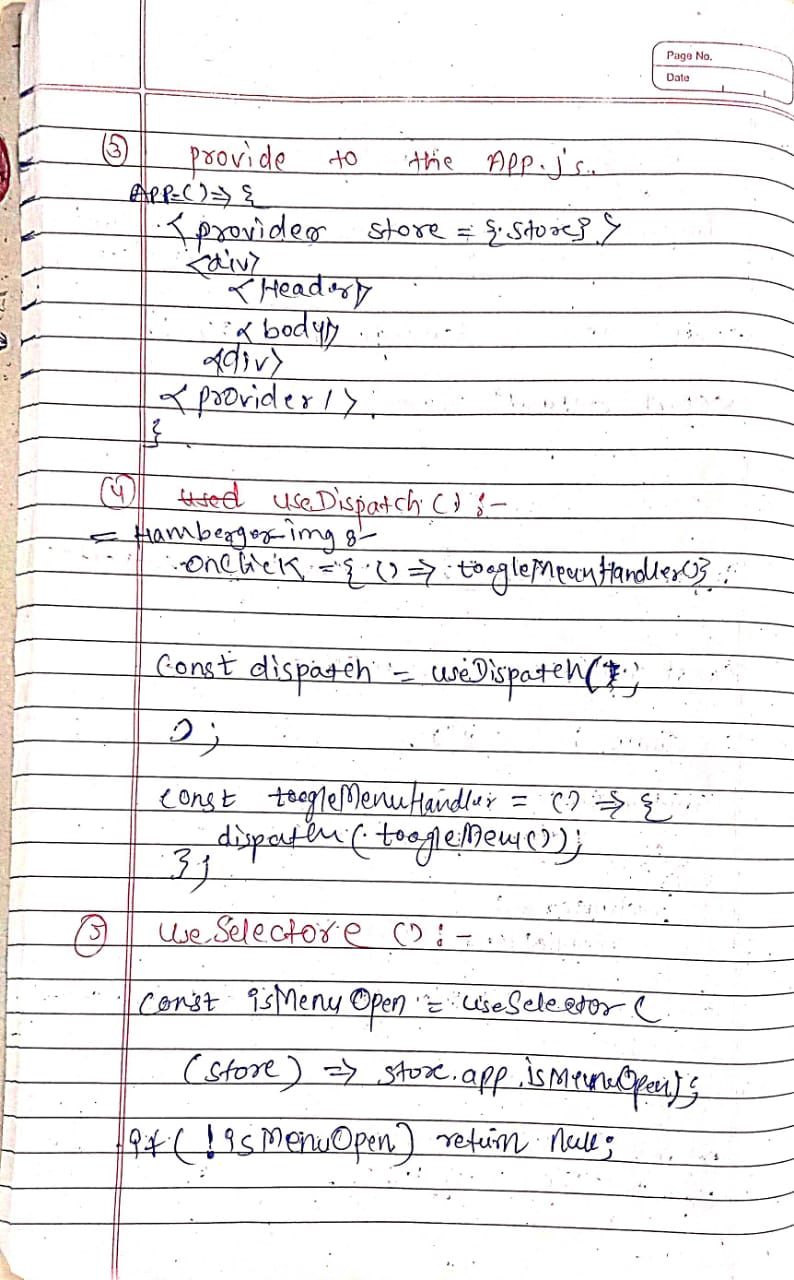 Page No.
Date
③ provide to the App.js.
APP=()=> {
<provider store = {store}>
<div>
<Header/>
<body/>
<div>
<provider/>
}
④ used useDispatch () :-
= Hamberger-img :-
onClick = { () => toogleMenuHandler()}
Const dispatch = useDispatch(
);
const toogleMenuHandler = () => {
dispatch( toogleMenu());
};
⑤ useSelectore () :-
Const isMenuOpen = useSelector (
(store) => store.app.isMenuOpen);
if ( !isMenuOpen) return null;